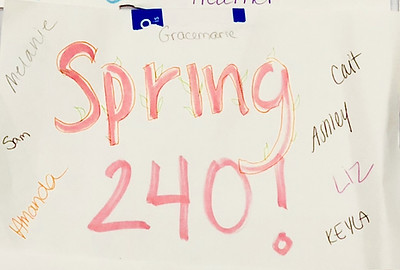 Gracemarie
Melanie
Spring
Cait
Sam
Ashley
240!
Amanda
LIZ
KEYLA